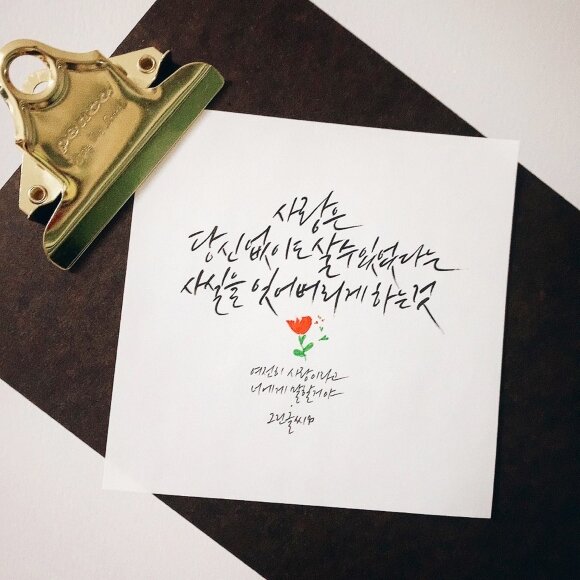 penco
사랑은
당신없이도 살수있었다는
사실을 잊어버리게 하는것
여전히 사랑이라고
너에게 말할거야
그린글씨